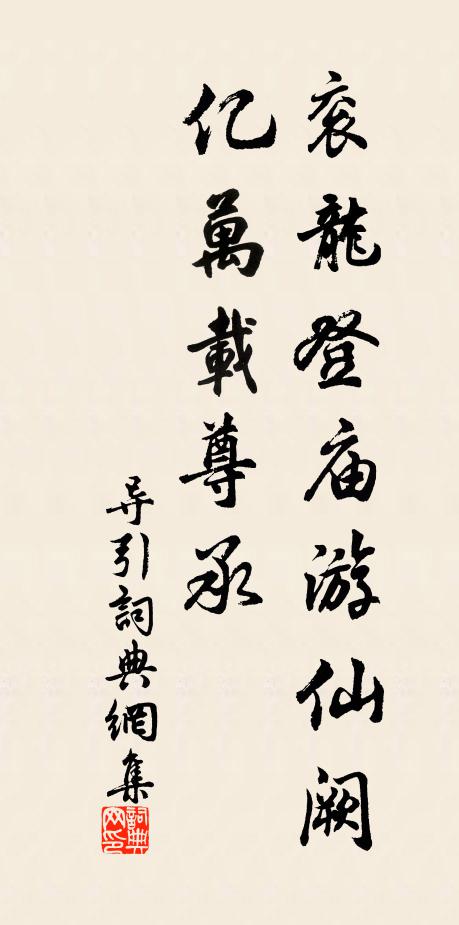 衮龍登庙游仙阙
亿萬載尊承
导引詞典網集
詞典网印